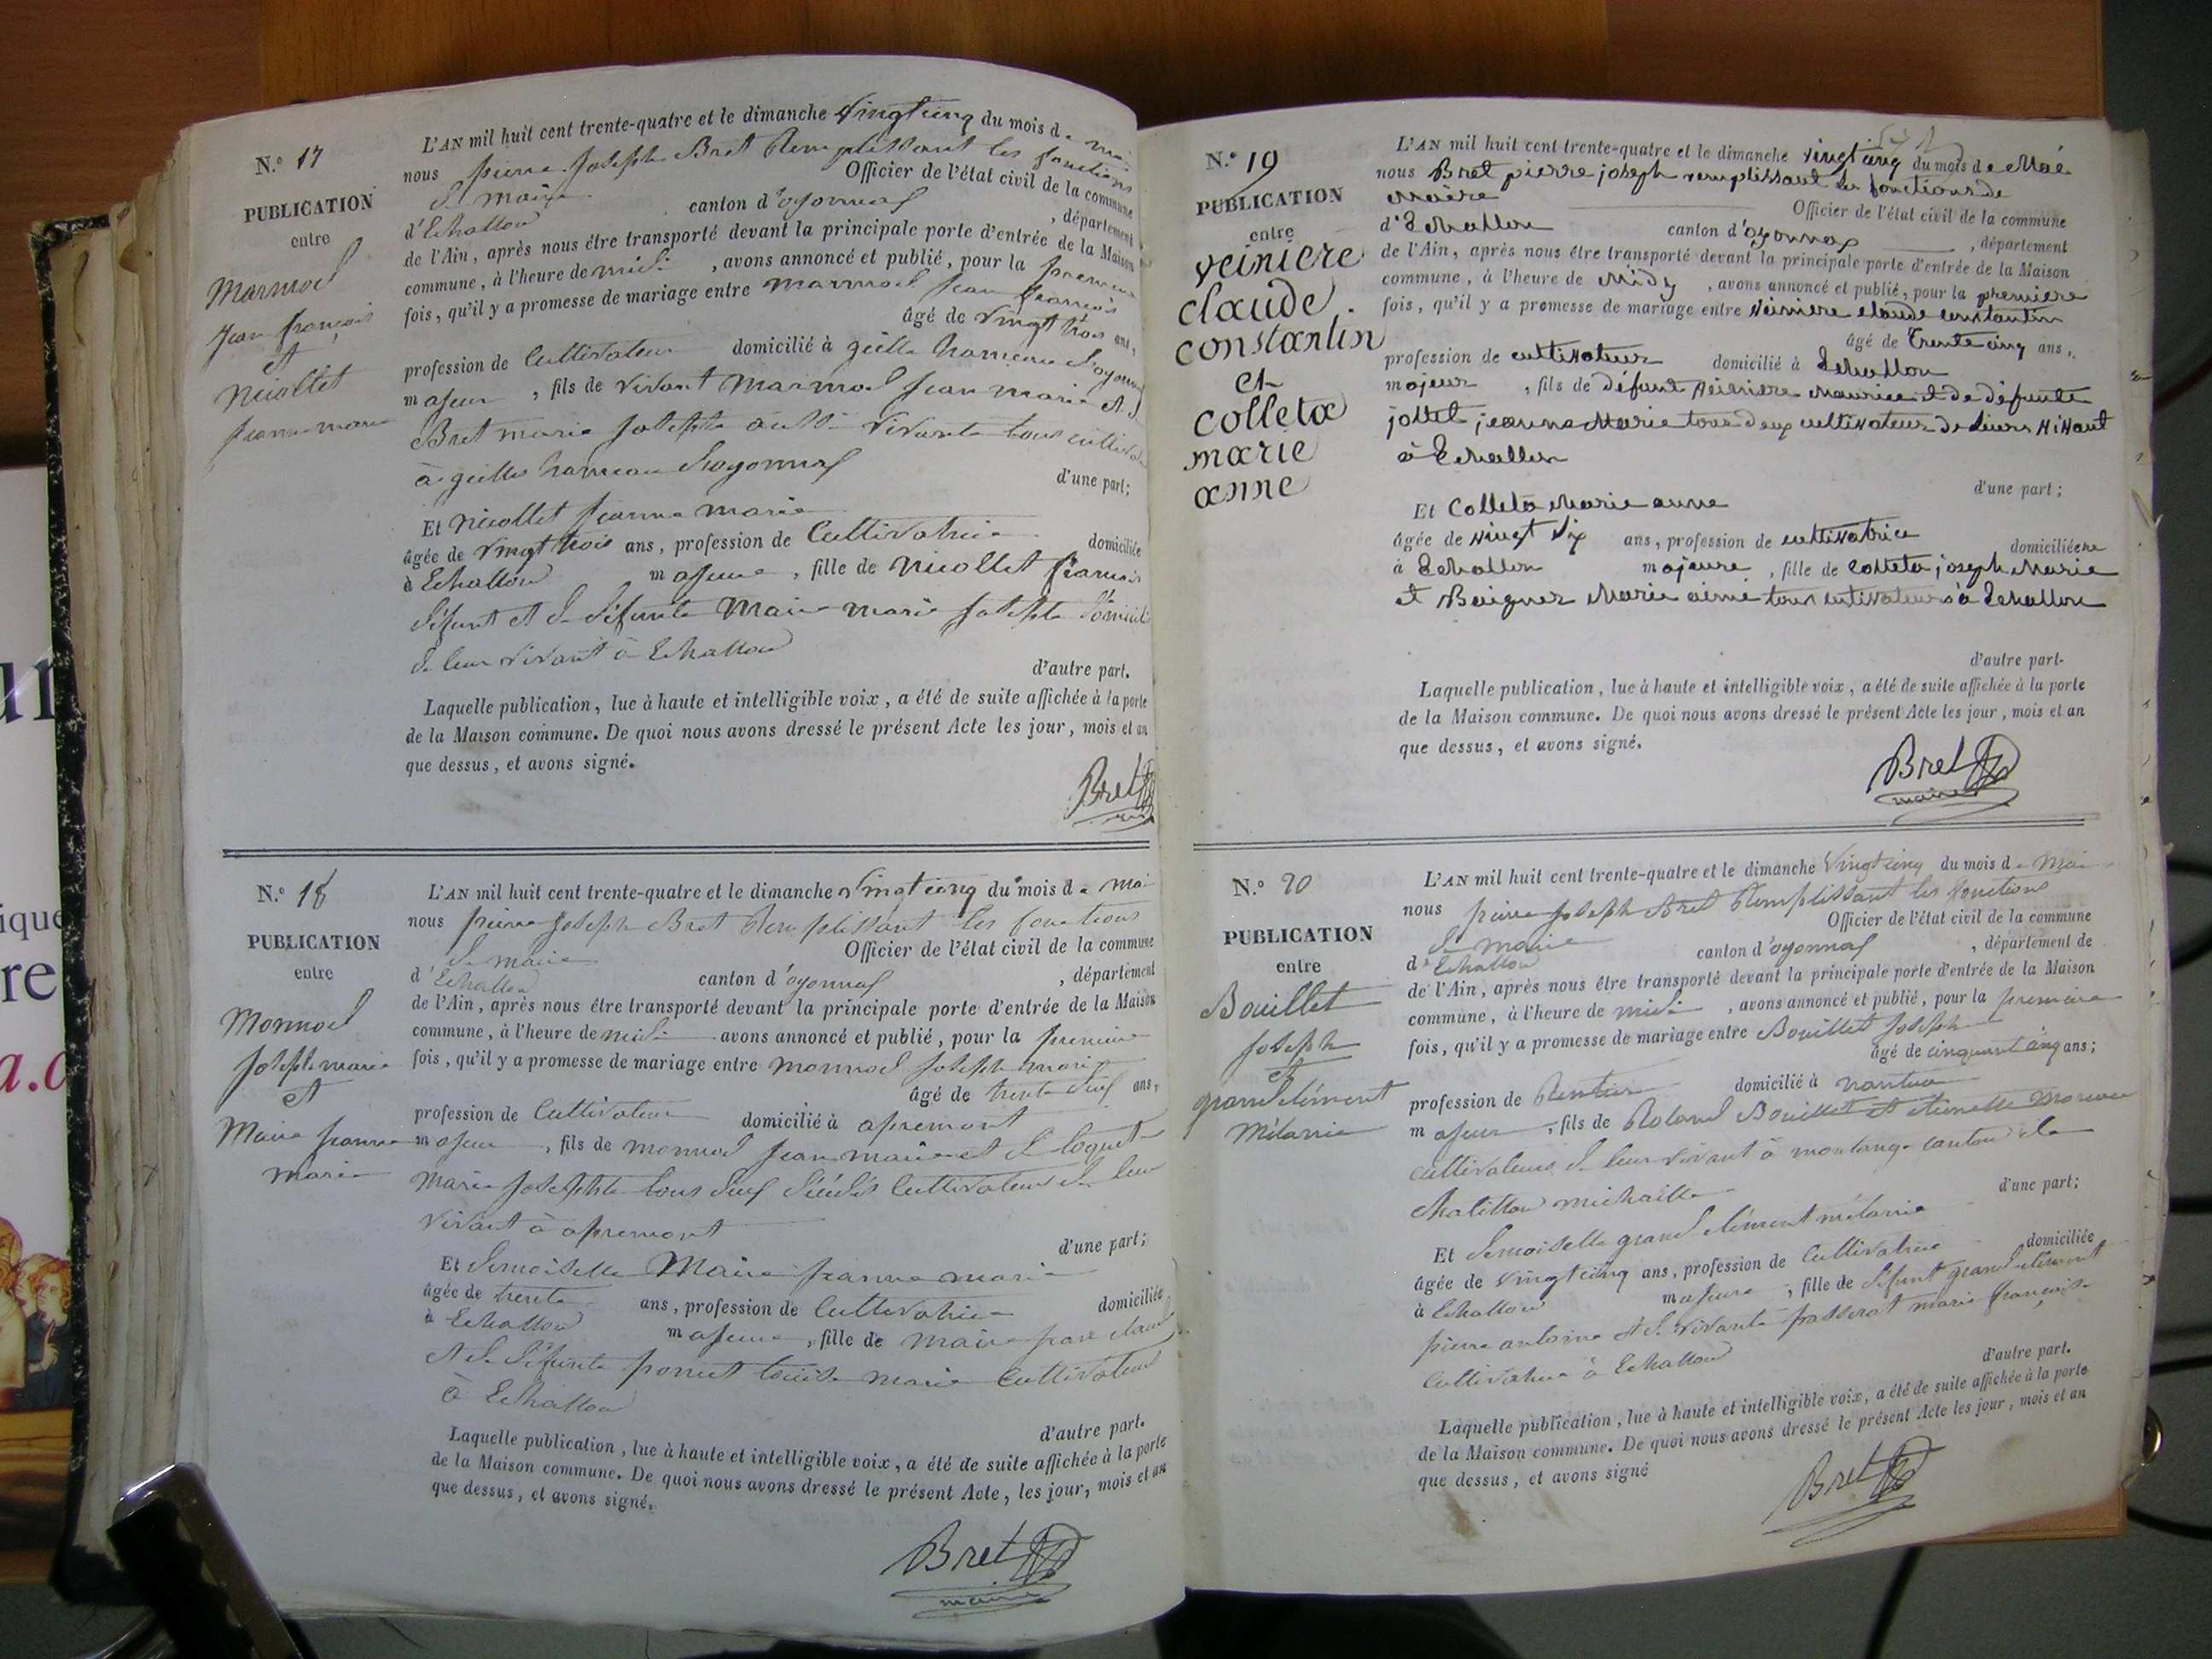 N.° 17
PUBLICATION
entre
Marmoel
Jean françois
et
Nicollet
jeanne marie
L'AN mil huit cent trente-quatre et le dimanche vingt cinq du mois de mai
nous pierre Joseph Bret Remplissant les fonctions
de maire Officier de l'état civil de la commune
d'Echallon canton d'oyonnax , département
de l'Ain, après nous être transporté devant la principale porte d'entrée de la Maison
commune, à l'heure de midi , avons annoncé et publié, pour la premiere
fois, qu'il y a promesse de mariage entre marmoel jean françois
âgé de vingt trois ans,
profession de Cultivateur domicilié à hameau d'oyonnax
majeur , fils de vivant Marmoel jean marie et de
Bret marie josephte aussi vivante tous cultivateurs
à hameau d'oyonnax
d'une part;
Et Nicollet jeanne marie
âgée de vingt trois ans, profession de Cultivatrice domiciliée
à Echallon majeure , fille de Nicollet francois
défunt et de défunte Maire marie josephte domiciliés
de leur vivant à Echallon
d'autre part.
Laquelle publication, lue à haute et intelligible voix, a été de suite affichée à la porte
de la Maison commune. De quoi nous avons dressé le présent Acte les jour, mois et an
que dessus, et avons signé.
Bret
N.° 18
PUBLICATION
entre
Monnoel
Joseph marie
et
Maire jeanne
marie
L'AN mil huit cent trente-quatre et le dimanche vingt cinq du mois de mai
nous pierre joseph Bret Remplissant les fonctions
de maire Officier de l'état civil de la commune
d'Echallon canton d'oyonnax , département
de l'Ain, après nous être transporté devant la principale porte d'entrée de la Maison
commune, à l'heure de midi avons annoncé et publié, pour la premiere
fois, qu'il y a promesse de mariage entre monnoel joseph marie
âgé de trente deux ans,
profession de Cultivateur domicilié à apremont
majeur , fils de monnoel jean marie et de
Marie josephte tous deux décédés Cultivateurs de leur
vivant à apremont
d'une part;
Et demoiselle Maire jeanne marie
âgée de trente ans, profession de Cultivatrice domiciliée
à Echallon majeure , fille de maire
et de défunte poncet louise marie Cultivateurs
à Echallon
d'autre part.
Laquelle publication, lue à haute et intelligible voix, a été de suite affichée à la porte
de la Maison commune. De quoi nous avons dressé le présent Acte, les jour, mois et an
que dessus, et avons signé.
Bret
maire
N.° 19
PUBLICATION
entre
veiniere
claude
constantin
et
colleta
marie
anne
L'AN mil huit cent trente-quatre et le dimanche vingt cinq du mois de Mai
nous Bret pierre joseph remplissant les fonctions de
Maire Officier de l'état civil de la commune
d'Echallon canton d'oyonnax , département
de l'Ain, après nous être transporté devant la principale porte d'entrée de la Maison
commune, à l'heure de Midy , avons annoncé et publié, pour la premiere
fois, qu'il y a promesse de mariage entre veiniere claude constantin
âgé de Trente cinq ans,
profession de cultivateur domicilié à Echallon
majeur , fils de défunt veiniere Maurice et de défunte
jollet jeanne Marie tous deux cultivateurs de leurs vivant
à Echallon
d'une part;
Et Colleta Marie anne
âgée de vingt six ans, profession de cultivatrice domiciliée
à Echallon majeure , fille de Colleta joseph Marie
et Marie aimé tous cultivateurs à Echallon
d'autre part.
Laquelle publication, lue à haute et intelligible voix, a été de suite affichée à la porte
de la Maison commune. De quoi nous avons dressé le présent Acte les jour, mois et an
que dessus, et avons signé.
Bret
maire
N.° 20
PUBLICATION
entre
Bouillet
joseph
et
grandclément
Mélanie
L'AN mil huit cent trente-quatre et le dimanche vingt cinq du mois de Mai
nous pierre joseph Bret Remplissant les fonctions
de maire Officier de l'état civil de la commune
d'Echallon canton d'oyonnax , département de
de l'Ain, après nous être transporté devant la principale porte d'entrée de la Maison
commune, à l'heure de midi , avons annoncé et publié, pour la premiere
fois, qu'il y a promesse de mariage entre Bouillet joseph
âgé de cinquant cinq ans;
profession de Rentier domicilié à nantua
majeur , fils de Roland Bouillet et
cultivateurs de leur vivant à montange canton de
chatillon michaille
d'une part;
Et demoiselle grandclément mélanie
âgée de vingt cinq ans, profession de Cultivatrice domiciliée
à Echallon majeure , fille de défunt grandclément
pierre antoine et de vivante passerat marie françoise
Cultivatrice à Echallon
d'autre part.
Laquelle publication, lue à haute et intelligible voix, a été de suite affichée à la porte
de la Maison commune. De quoi nous avons dressé le présent Acte les jour, mois et an
que dessus, et avons signé
Bret